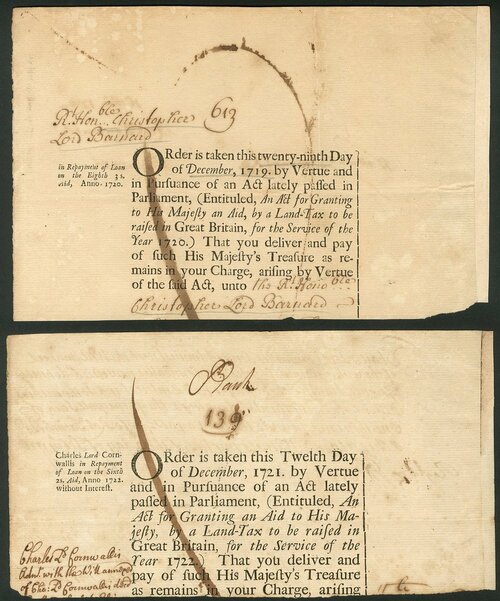 Rt Honble Christopher 613
Lord Barnard
in Repayment of Loan
on the Eighth 3 s.
Aid, Anno. 1720.
ORder is taken this twenty-ninth Day
of December, 1719. by Vertue and
in Pursuance of an Act lately passed in
Parliament, (Entituled, An Act for Granting
to His Majesty an Aid, by a Land-Tax to be
raised in Great Britain, for the Service of the
Year 1720.) That you deliver and pay
of such His Majesty's Treasure as re-
mains in your Charge, arising by Vertue
of the said Act, unto the Rt Honoble
Christopher Lord Barnard
139
Charles Lord Corn-
wallis in Repayment
of Loan on the Sixth
2s. Aid, Anno 1722.
without Interest.
ORder is taken this Twelfth Day
of December, 1721. by Vertue
and in Pursuance of an Act lately
passed in Parliament, (Entituled, An
Act for Granting an Aid to His Ma-
jesty, by a Land-Tax to be raised in
Great Britain, for the Service of the
Year 1722.) That you deliver and
pay of such His Majesty's Treasure
as remains in your Charge, arising
Charles Ld Cornwallis
Admr with the Will annexed
of Cha: Ld Cornwallis